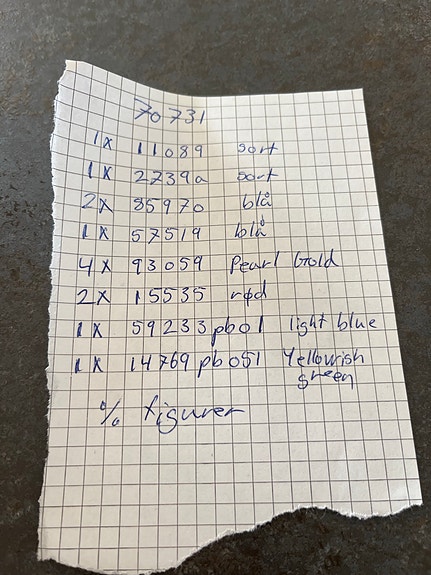 70731
1x 11089 sort
1x 2739a sort
2x 85970 blå
1x 57519 blå
4x 93059 Pearl Gold
2x 15535 rød
1x 59233pb01 light blue
1x 14769pb051 Yellowish
green
% figurer